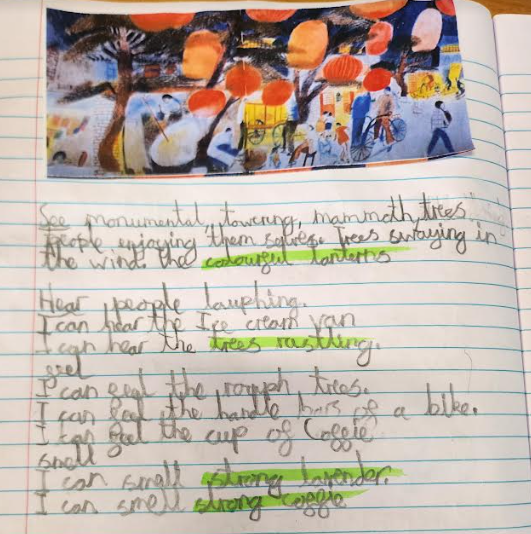 See monumental, towering, mammoth trees
people enjoying them selves. Trees swaying in
the wind. the colourful lanterns
Hear people laughing.
I can hear the Ice cream van
I can hear the trees rustling.
feel
I can feel the rough trees.
I can feel the handle bars of a bike.
I can feel the cup of Coffie
smell
I can small strong lavender.
I can smell strong coffie